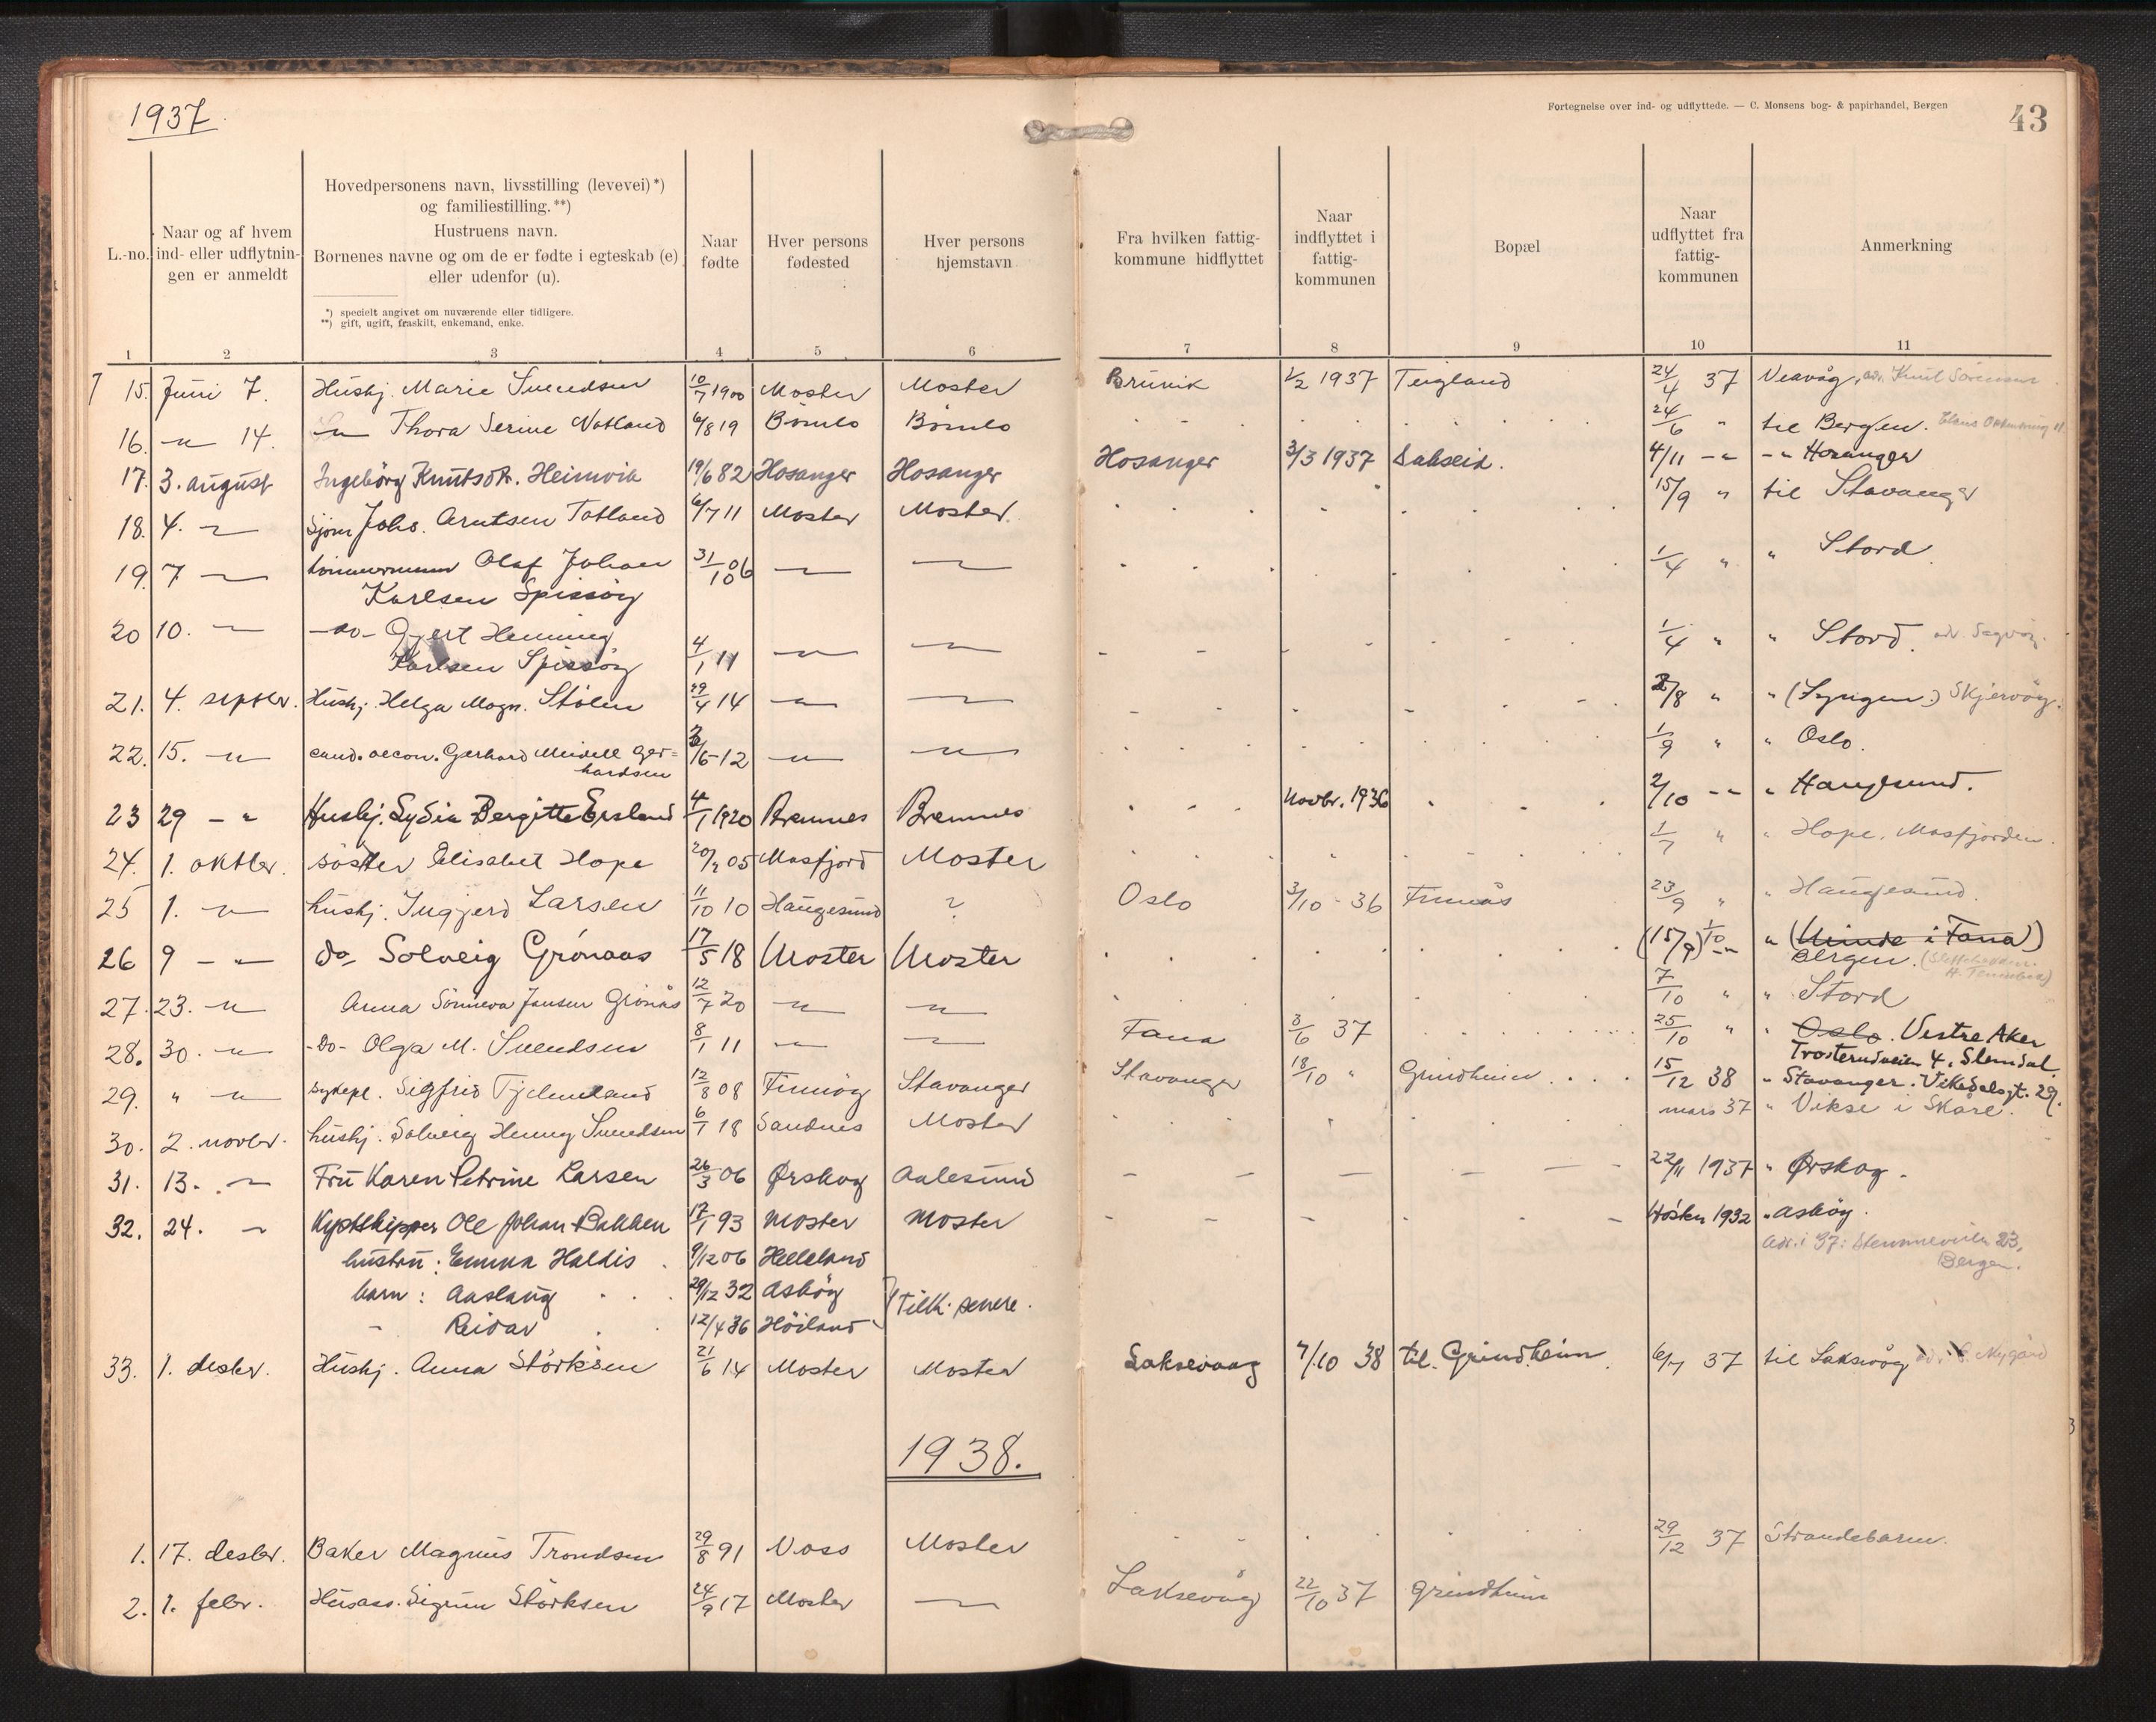 1937
Fortegnelse over ind- og udflyttede. — C. Monsens bog- & papirhandel, Bergen
43
L.-no.
Naar og af hvem
ind- eller udflytnin-
gen er anmeldt
Hovedpersonens navn, livsstilling (levevei)*)
og familiestilling.**)
Hustruens navn.
Børnenes navne og om de er fødte i egteskab (e)
eller udenfor (u).
*) specielt angivet om nuværende eller tidligere.
**) gift, ugift, fraskilt, enkemand, enke.
Naar
fødte
Hver persons
fødested
Hver persons
hjemstavn
Fra hvilken fattig-
kommune hidflyttet
Naar
indflyttet i
fattig-
kommunen
Bopæl
Naar
udflyttet fra
fattig-
kommunen
Anmerkning
1 2 3 4 5 6 7 8 9 10 11
15. Juni 7. Hushj. Marie Svendsen 10/7 1900 Moster Moster Brüvik 1/2 1937 Teigland 24/4 37 Veavåg, adr. Knut Sörensen
16. -"- 14. -"- Thora Serine Notland 6/8 19 Bömlo Bömlo 24/6 " til Bergen.
17. 3. august Ingebörg Knutsdtr. Heimvik 19/6 82 Hosanger Hosanger Hosanger 3/3 1937 Sakseid. 4/11 -"- -"- Hosanger
18. 4. -"- Sjöm Johs. Arntsen Totland 6/7 11 Moster Moster. 15/9 " til Stavanger
19. 7 -"- tömmermann Olaf Johan 31/10 06 -"- -"- 1/4 " " Stord
Karlsen Spissöy
20 10. -"- -do- Gjert Henning
Karlsen Spissöy 4/1 11 -"- -"- 1/4 " " Stord. adr. Sagvåg.
21. 4. septbr. Hushj. Helga Magn. Stölen 29/4 14 -"- -"- 2/8 " " (Lyngen.) Skjervöy.
22. 15. -"- cand. oecon. Gerhard Meidell Ger=
hardsen 3/5 12 -"- -"- 1/9 " " Oslo.
23 29 -"- Hushj. Lydia Bergitte Ersland 4/1 1920 Bremnes Bremnes Novbr. 1936 2/10 -"- " Haugesund.
24. 1. oktbr. söster Elisabet Hope 20/2 05 Masfjord Moster 1/7 " " Hope, Masfjorden.
25 1. -"- hushj. Ingjerd Larsen 11/10 10 Haugesund ? Oslo 3/10 - 36 Finnås 23/9 " " Haugesund.
26 9 -"- do- Solveig Grönaas 17/5 18 Moster Moster (15/9) 1/10 -"- " (Minde i Fana)
Bergen.
27. 23. -"- Anna Sönneva Jansen Grönås 12/7 20 -"- -"- 7/10 " " Stord
28. 30. -"- -do- Olga M. Svendsen 8/1 11 -"- -"- Fana 3/6 37 25/10 " " Oslo. Vestre Aker
Trosterudveien 4, Slemdal.
29. " -"- sykepl. Sigfrid Tjelmeland 12/8 08 Finnöy Stavanger Stavanger 18/10 " Grindheim 15/12 38 " Stavanger. Vikedalsgt. 29.
30. 2. novbr. hushj. Solveig Henny Svendsen 6/1 18 Sandnes Moster mars 37 " Vikse i Skåre.
31. 13. -"- Fru Karen Petrine Larsen 26/3 06 Ørskog Aalesund 22/11 1937 " Ørskog.
32. 24. -"- Kystskipper Ole Johan Bakken 17/1 93 Moster Moster Hösten 1932 " Asköy.
adr. i 37: Stemmeveien 23,
Bergen.
hustru: Emma Haldis 9/12 06 Helleland
barn: Aaslaug 29/12 32 Asköy } Tilk. senere.
- Reidar 12/4 36 Höiland
33. 1. desbr. Hushj. Anna Störksen 21/6 14 Moster Moster Laksevaag 7/10 38 til. Grindheim 6/7 37 til Laksevåg adr. Nygård
1938.
1. 17. desbr. Baker Magnus Trondsen 29/8 91 Voss Moster 29/12 37 Strandebarm.
2. 1. febr. Husass. Sigrun Störksen 24/9 17 Moster -"- Laksevåg 22/10 37 Grindheim